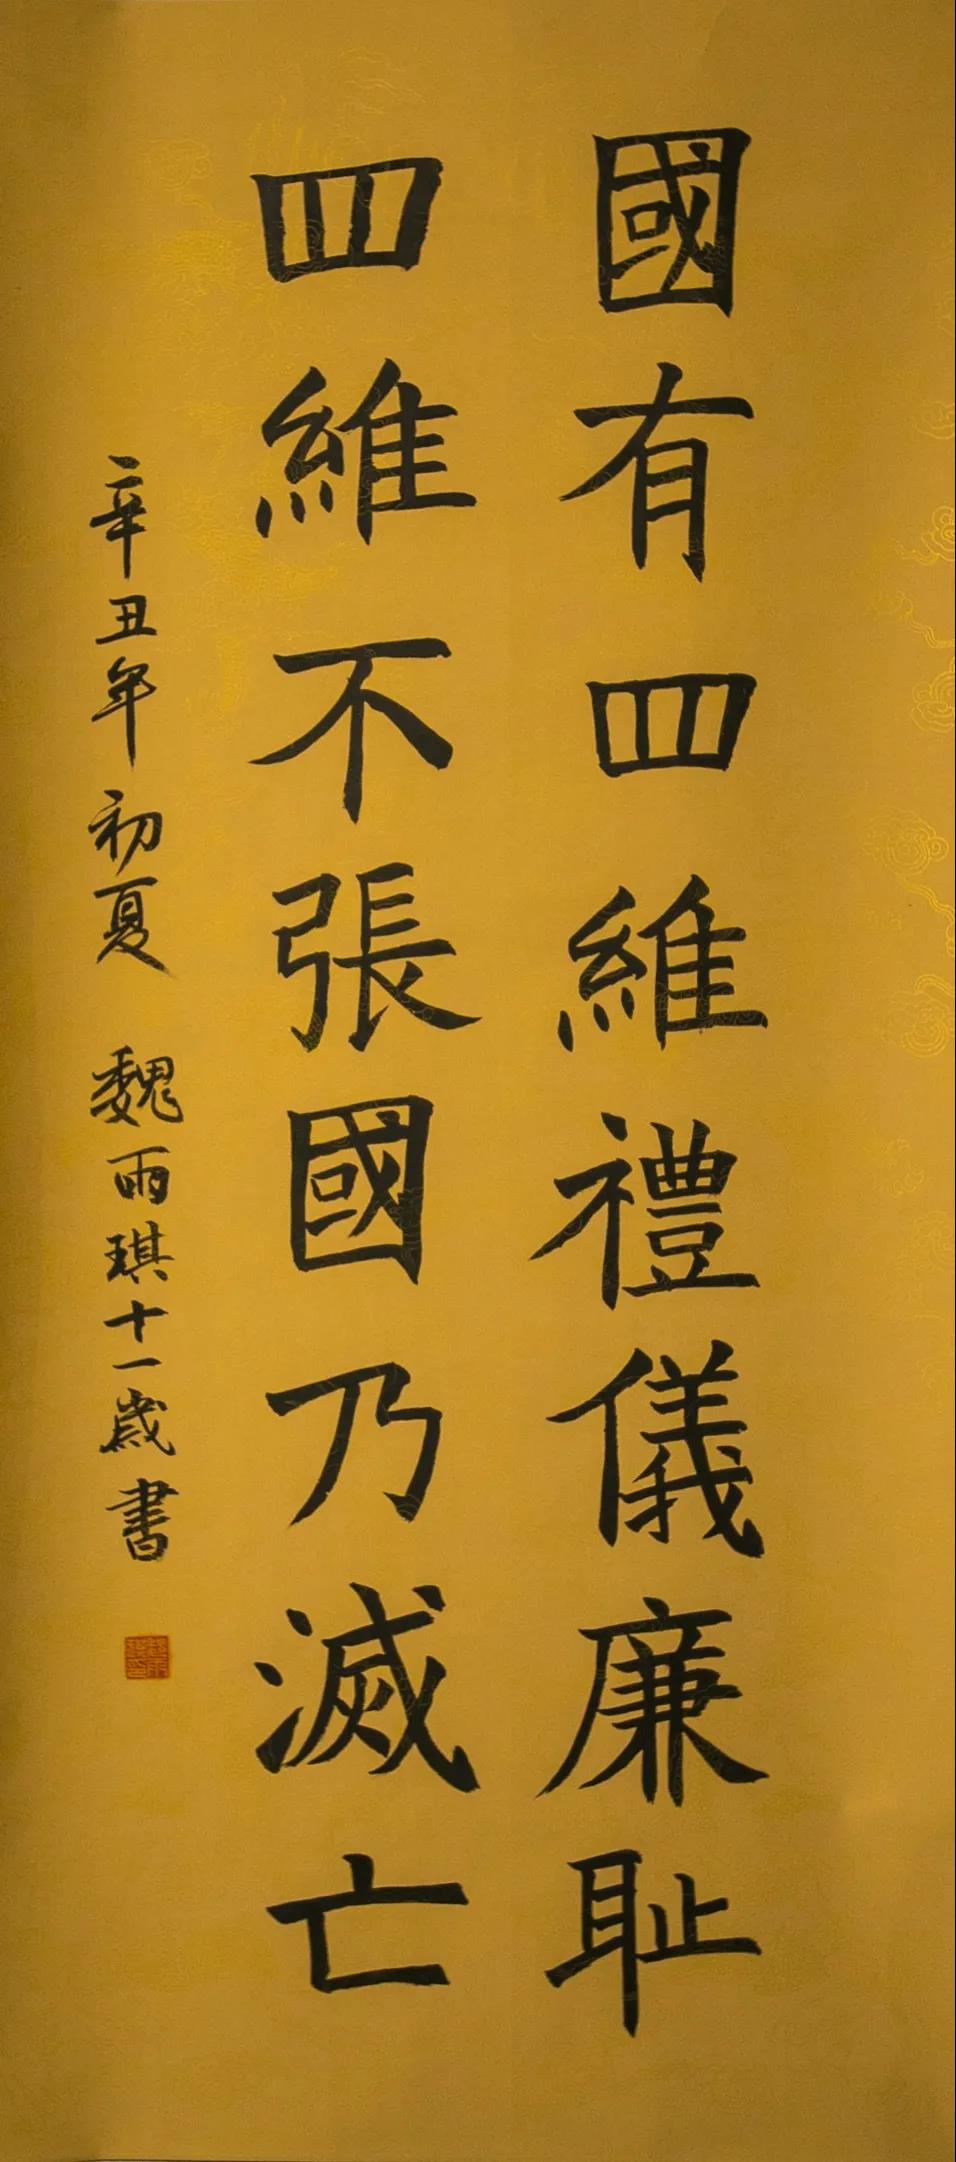 國有四維禮儀廉耻
四維不張國乃滅亡
辛丑年初夏 魏雨琪十一歲書